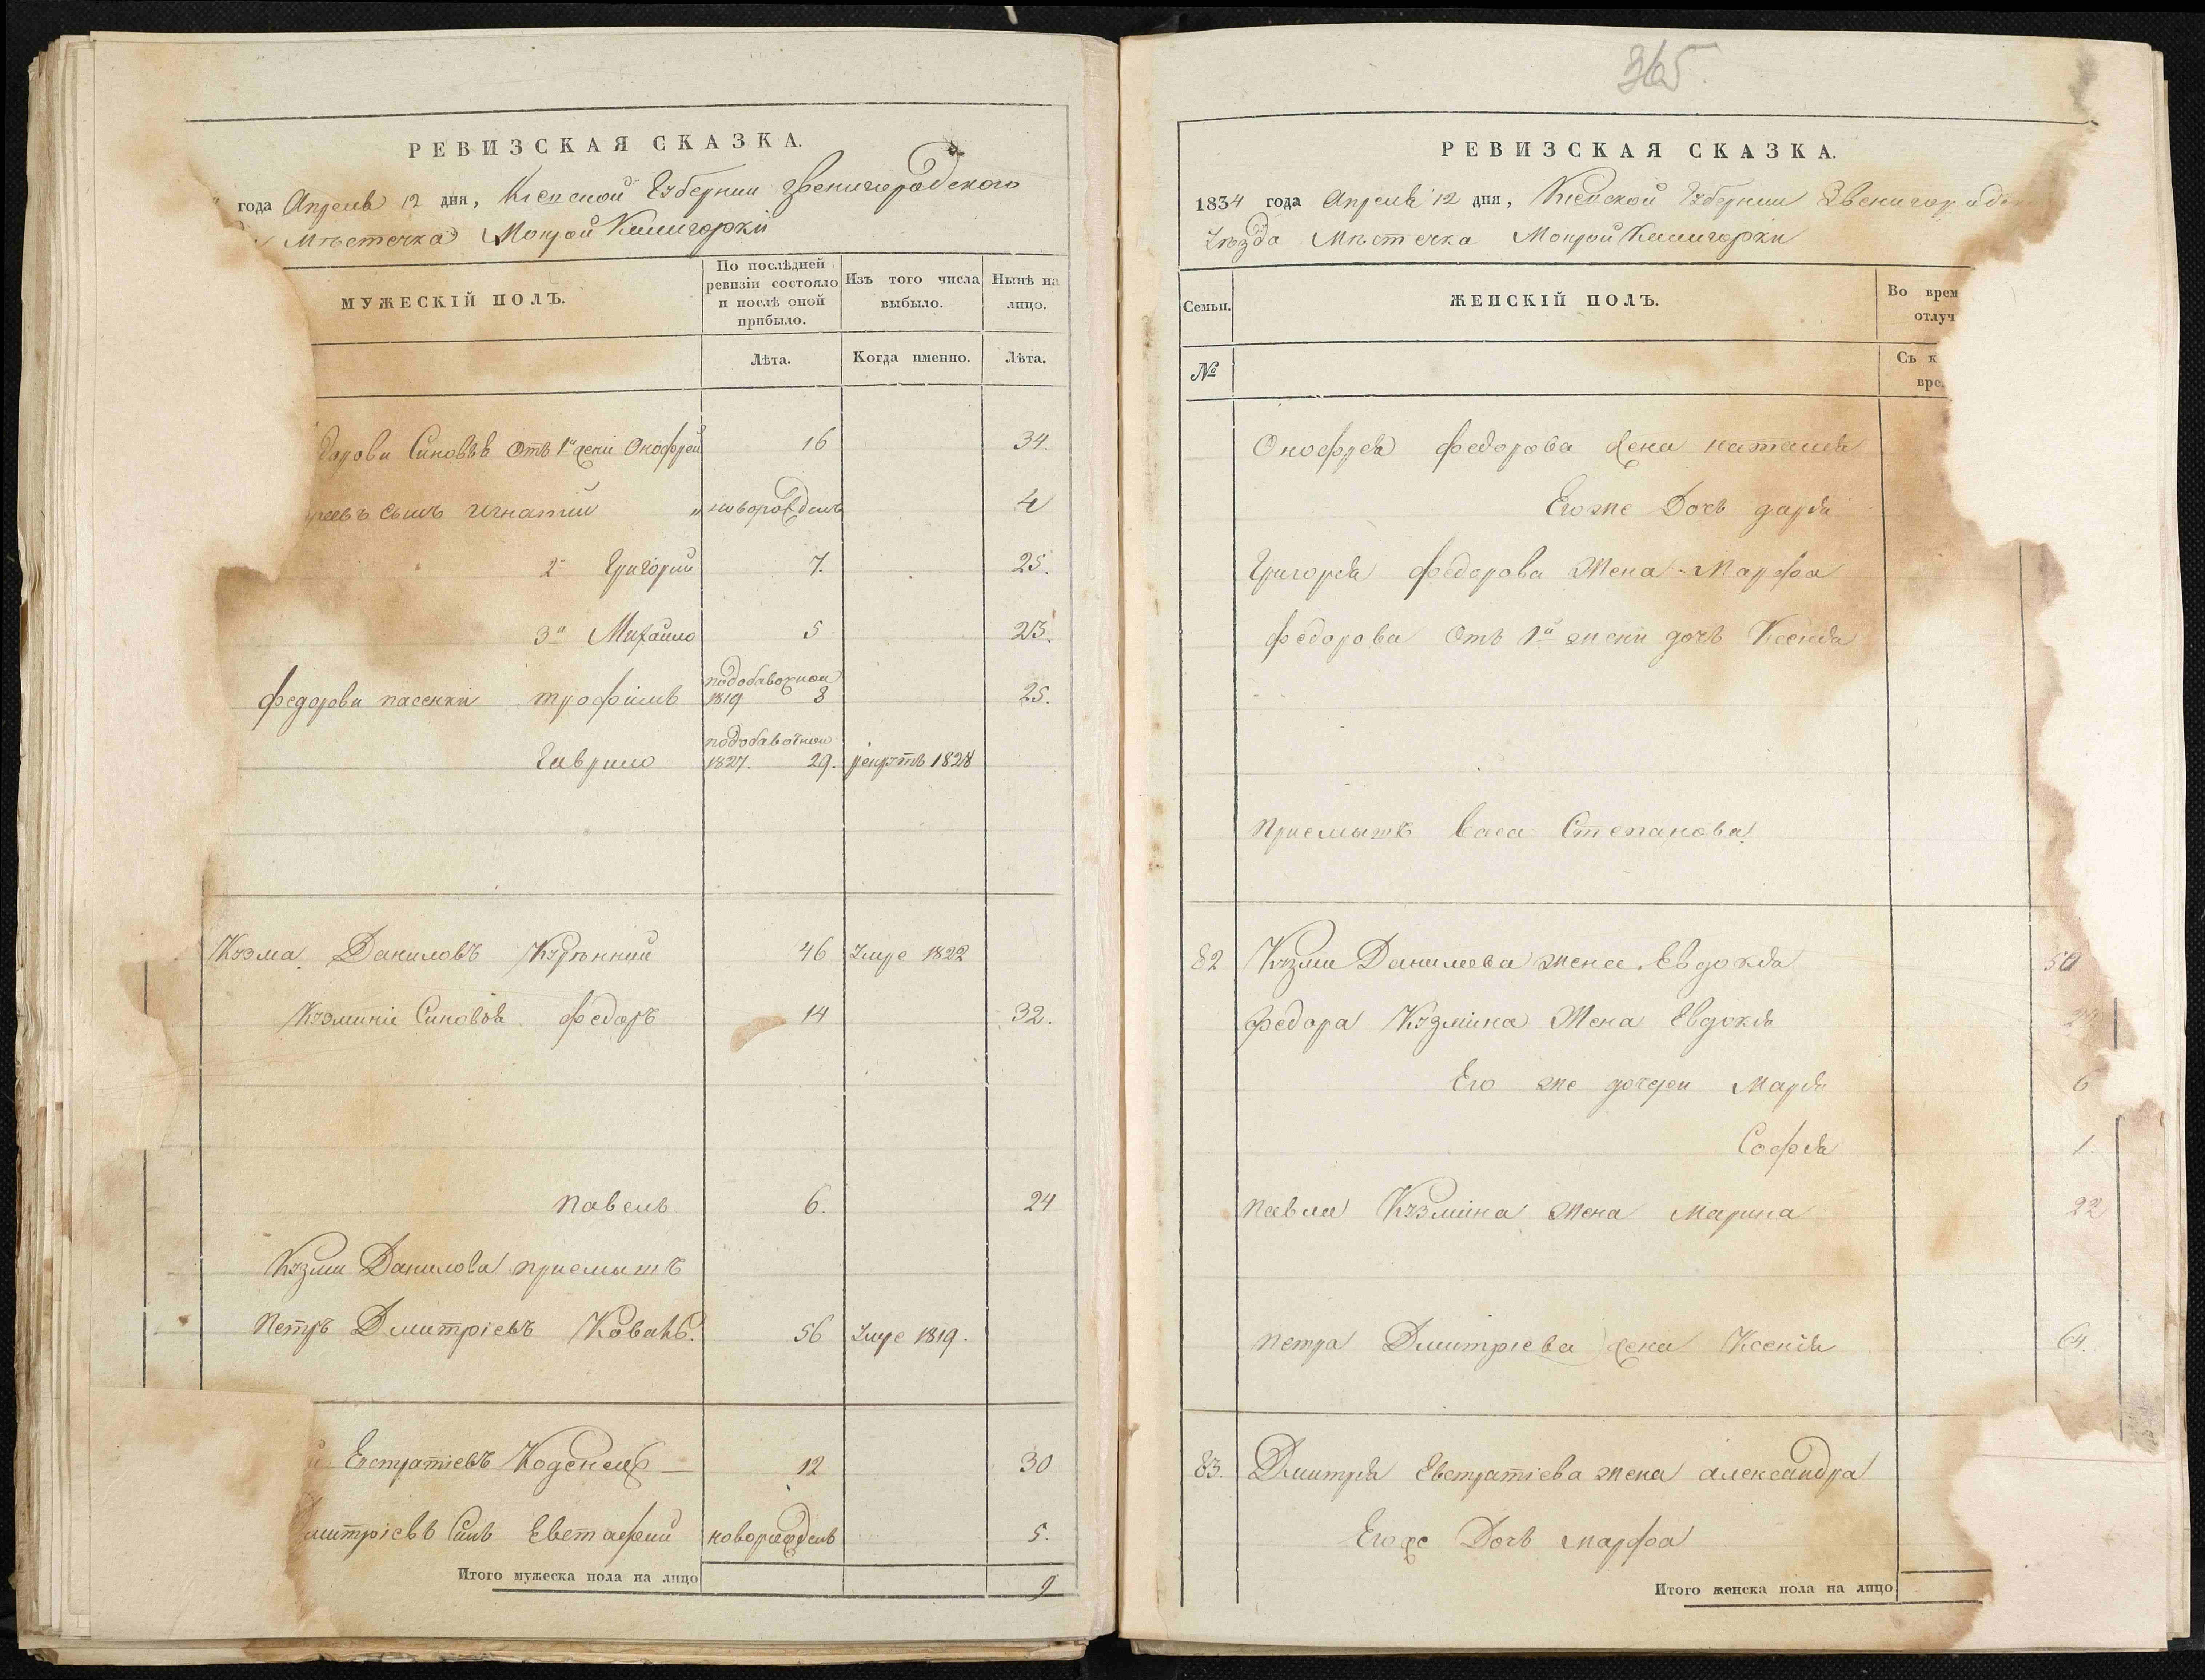 РЕВИЗСКАЯ СКАЗКА.
года Апреля 12 дня, Кіевской Губернии Звенигородского
Мѣстечка Мокрой Калигорки
МУЖЕСКІЙ ПОЛЪ.
По послѣдней ревизіи состояло и послѣ оной прибыло.
Изъ того числа выбыло.
Нынѣ на лицо.
Лѣта.
Когда именно.
Лѣта.
Синовья Отъ 1й жени Онофрей 16 34.
сынъ Игнатий новорожденъ 4
2й Григорий 7. 25.
3й Михайло 5 23.
Федорови пасенки Трофимъ 1819 8 25.
Гаврило 1827. 29. рекрутъ 1828
Кузма Даниловъ 46 Умре 1822
Кузмини Синовья Федоръ 14 32.
Павелъ 6. 24
Кузми Данилова приемышъ
Петръ Дмитріевъ Коваль. 56 Умре 1819.
Евстратіевъ 12 30
Синъ Евстафий новорожденъ 5.
Итого мужеска пола на лицо 9
365.
РЕВИЗСКАЯ СКАЗКА.
1834 года Апреля 12 дня, Кіевской Губернии
Уѣзда Мѣстечка Мокрой Калигорки
Семьи.
ЖЕНСКІЙ ПОЛЪ.
Во врем
отлуч
№
Съ к
вре
Онофрея Федорова жена Наталия
Его же Дочь Дарья
Григорея Федорова Жена Марфа
Федорова Отъ 1й жени дочь Ксения
Приемышъ Васа Степанова.
82 Кузми Данилова жена Евдокия 50
Федора Кузмина Жена Евдокия
Его же дочери Марья 6
Софья 1.
Павла Кузмина Жена Марина 22
Петра Дмитріева жена Ксенія 64.
83. Дмитрия Евстратіева жена Александра
Его же Дочь Марфа
Итого женска пола на лицо